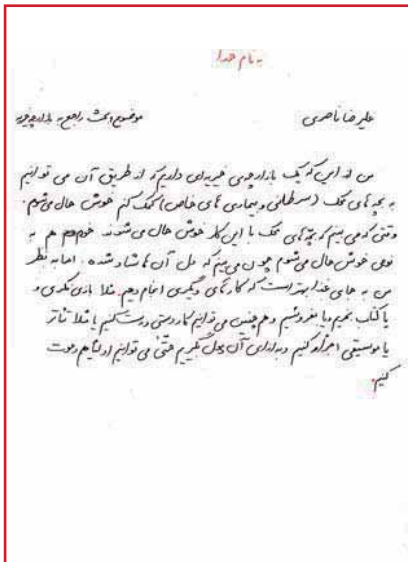 به نام خدا
علیرضا ناصری موضوع: بحث راجع به بازارچه خیریه
من از این که یک بازارچه‌ی خیریه‌ای داریم که از طریق آن می توانیم
به بچه های محک (سرطانی و بیماری های خاص) کمک کنم خوش حال می شوم.
وقتی که می بینم که بچه های محک با این کار خوش حال می شوند خودم هم به
نوعی خوش حال می شوم چون می بینم که دل آن ها شاد شده. اما به نظر
من به جای غذا بهتر است که کارهای دیگری انجام دهیم. مثلا بازی فکری و
یا کتاب بخریم و یا بفروشیم و هم چنین می توانیم کاردستی درست کنیم یا مثلا تئاتر
یا موسیقی اجرا کنیم و به ازای آن پول بگیریم حتی می توانیم اولیا هم دعوت
کنیم.